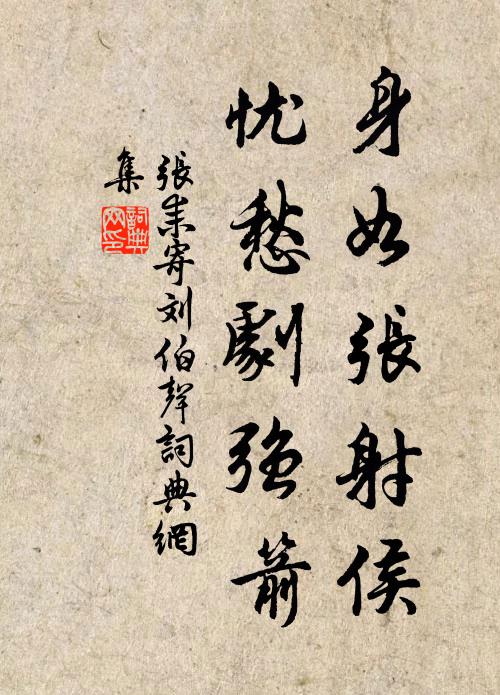 身如張射侯
忧愁劇強箭
張耒寄刘伯聲詞典網
集
詞典网印